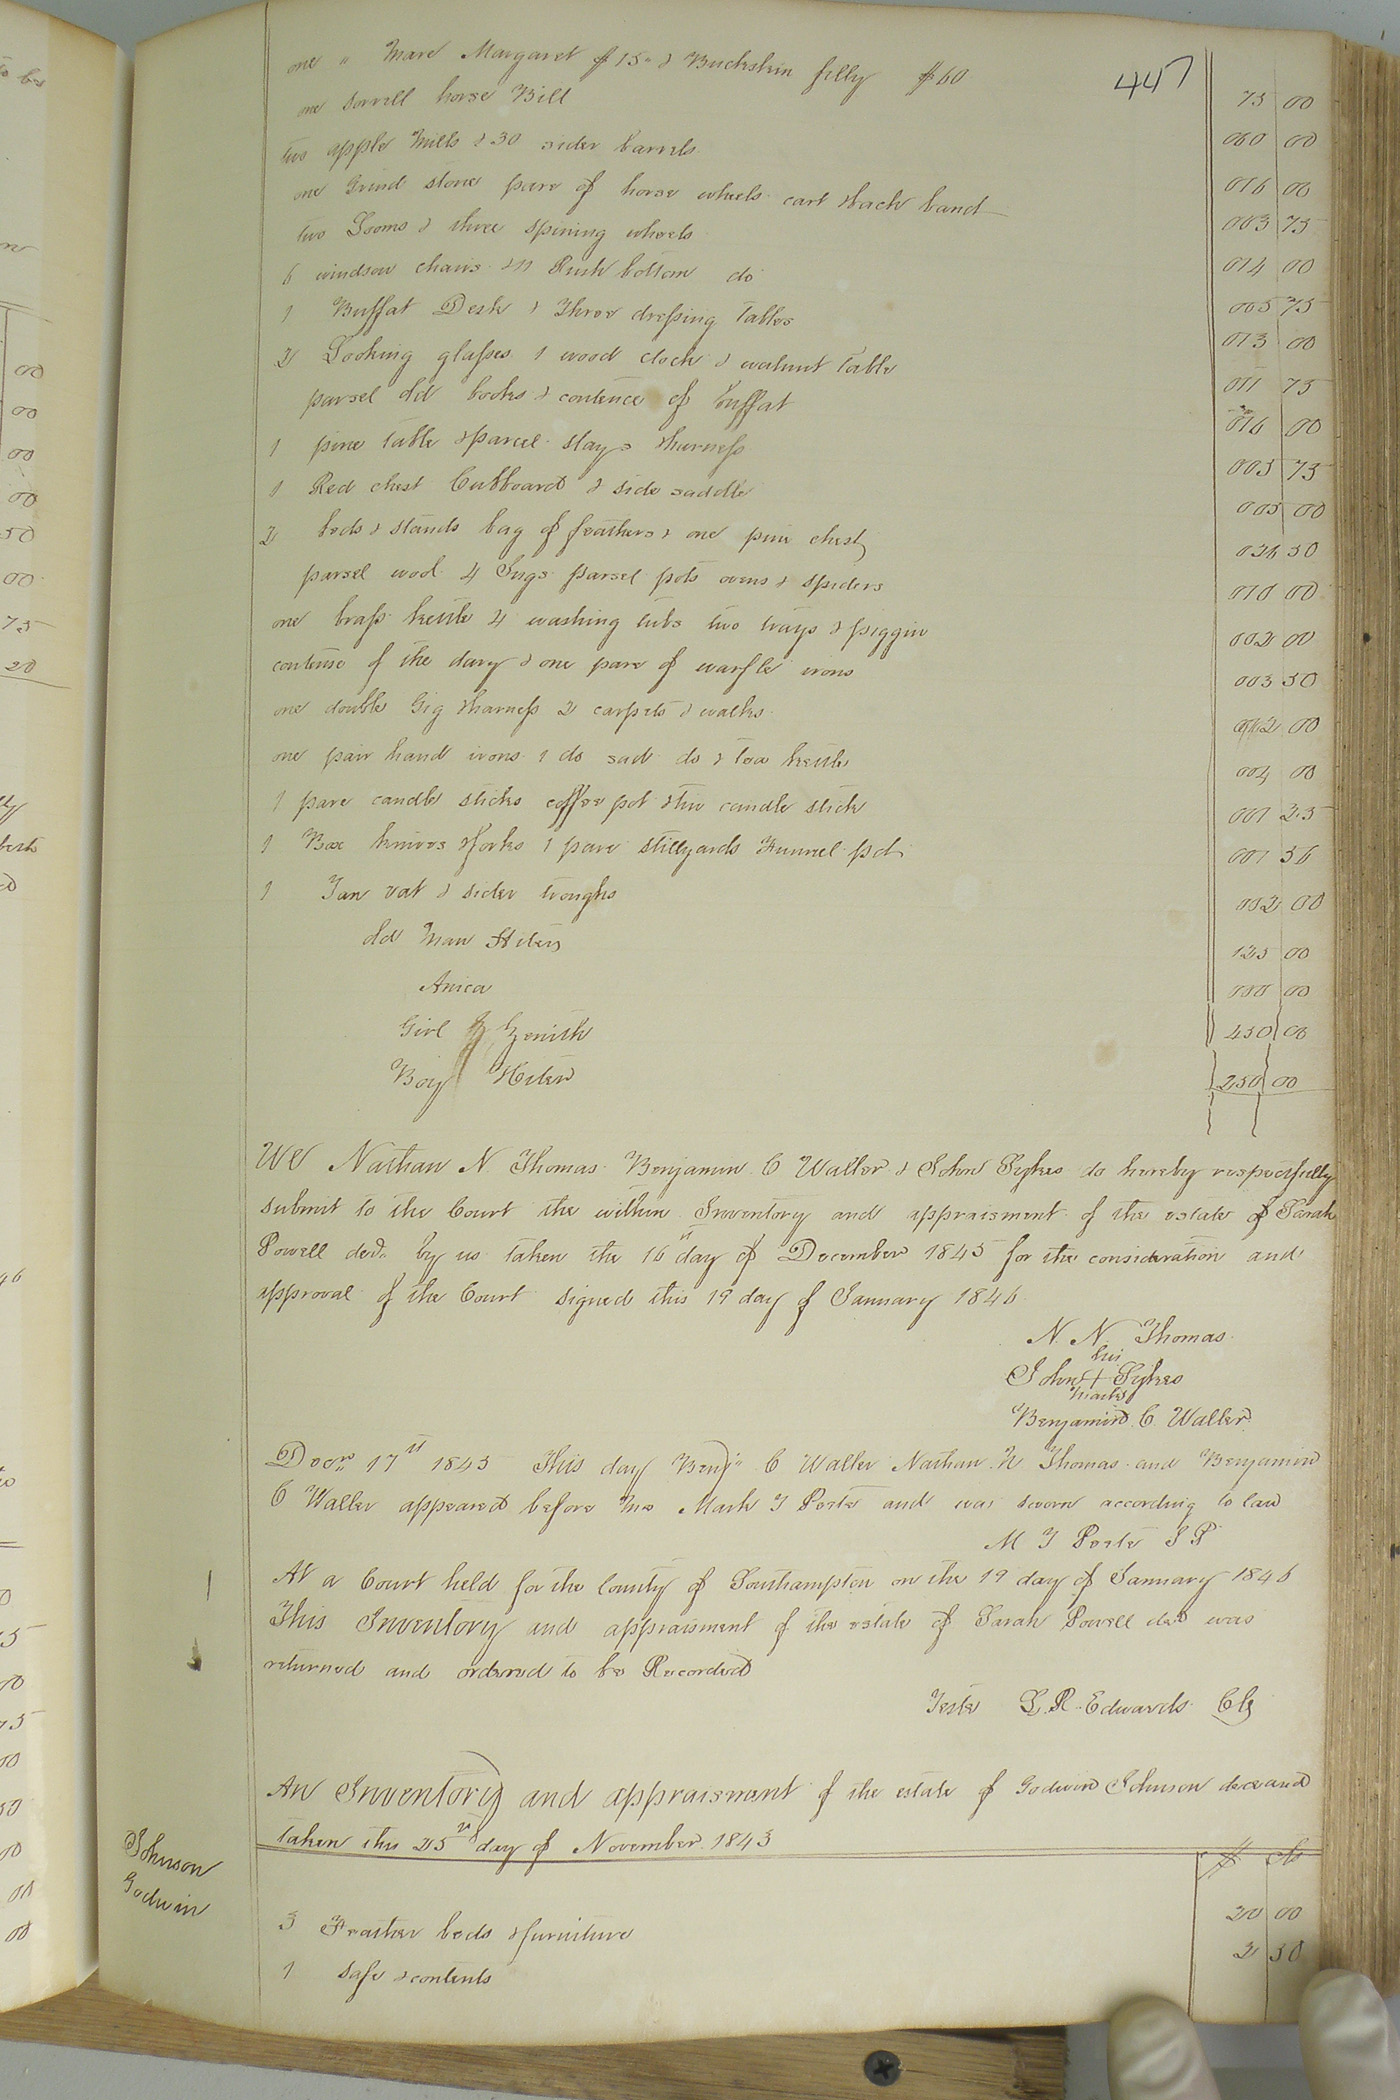 447
one " Mare Margaret $15 " & Buckskin filly $60 75 00
one Sorrell horse Bill 060 00
two apple Mills & 30 sider barrels 016 00
one Grind stone pare of horse wheels cart & back band 003 75
two Looms & three spining wheels 014 00
6 windsor chairs & 11 Rush bottom do 005 75
1 Buffat Desk & Three dressing Tables 013 00
2 Looking glasses 1 wood clock & walnut Table 011 75
parsel old books & contence of buffat 016 00
1 pine table & parcel slays & harness 005 75
1 Red chest Cubboard & side saddle 005 00
2 beds & stands bag of feathers & one pine chest 50
parsel wool 4 Jugs parsel pots ovens & spiders 010 00
one brass kettle 4 washing tubs two trays & piggin 002 00
contense of the dary & one pare of warfle irons 003 50
one double Gig & harness 2 carpets & walks 2 00
one pair hand irons 1 do sad do & tea kettle 004 00
1 pare candle sticks coffee pot & tin candle stick 001 25
1 Box knives & forks 1 pare stillyards Funnel &c 001 56
1 Tan vat & sider troughs 002 00
old Man 125 00
Anica 000 00
Girl Zenith 450 00
Boy 250 00
We Nathan N Thomas Benjamin C Waller & John Sykes do hereby respectfully
submit to the Court the within Inventory and appraisment of the estate of Sarah
Powell decd. by us taken the 16 day of December 1845 for the consideration and
approval of the Court signed this 19 day of January 1846
N. N. Thomas
his
John + Sykes
mark
Benjamin C. Waller
Decr 17th 1845 This day Benjn C Waller Nathan N Thomas and Benjamin
C Waller appeared before me Mark T Porter and was sworn according to law
M T Porter J P
At a Court held for the County of Southampton on the 19 day of January 1846
This Inventory and appraisment of the estate of Sarah Powell decd was
returned and ordered to be Recorded
Teste L. R. Edwards Clk
An Inventory and appraisment of the estate of Godwin Johnson deceased
taken this 25th day of November 1843
Johnson
Godwin
$ cts
3 Feather beds & furniture 20 00
1 safe & contents 2 50